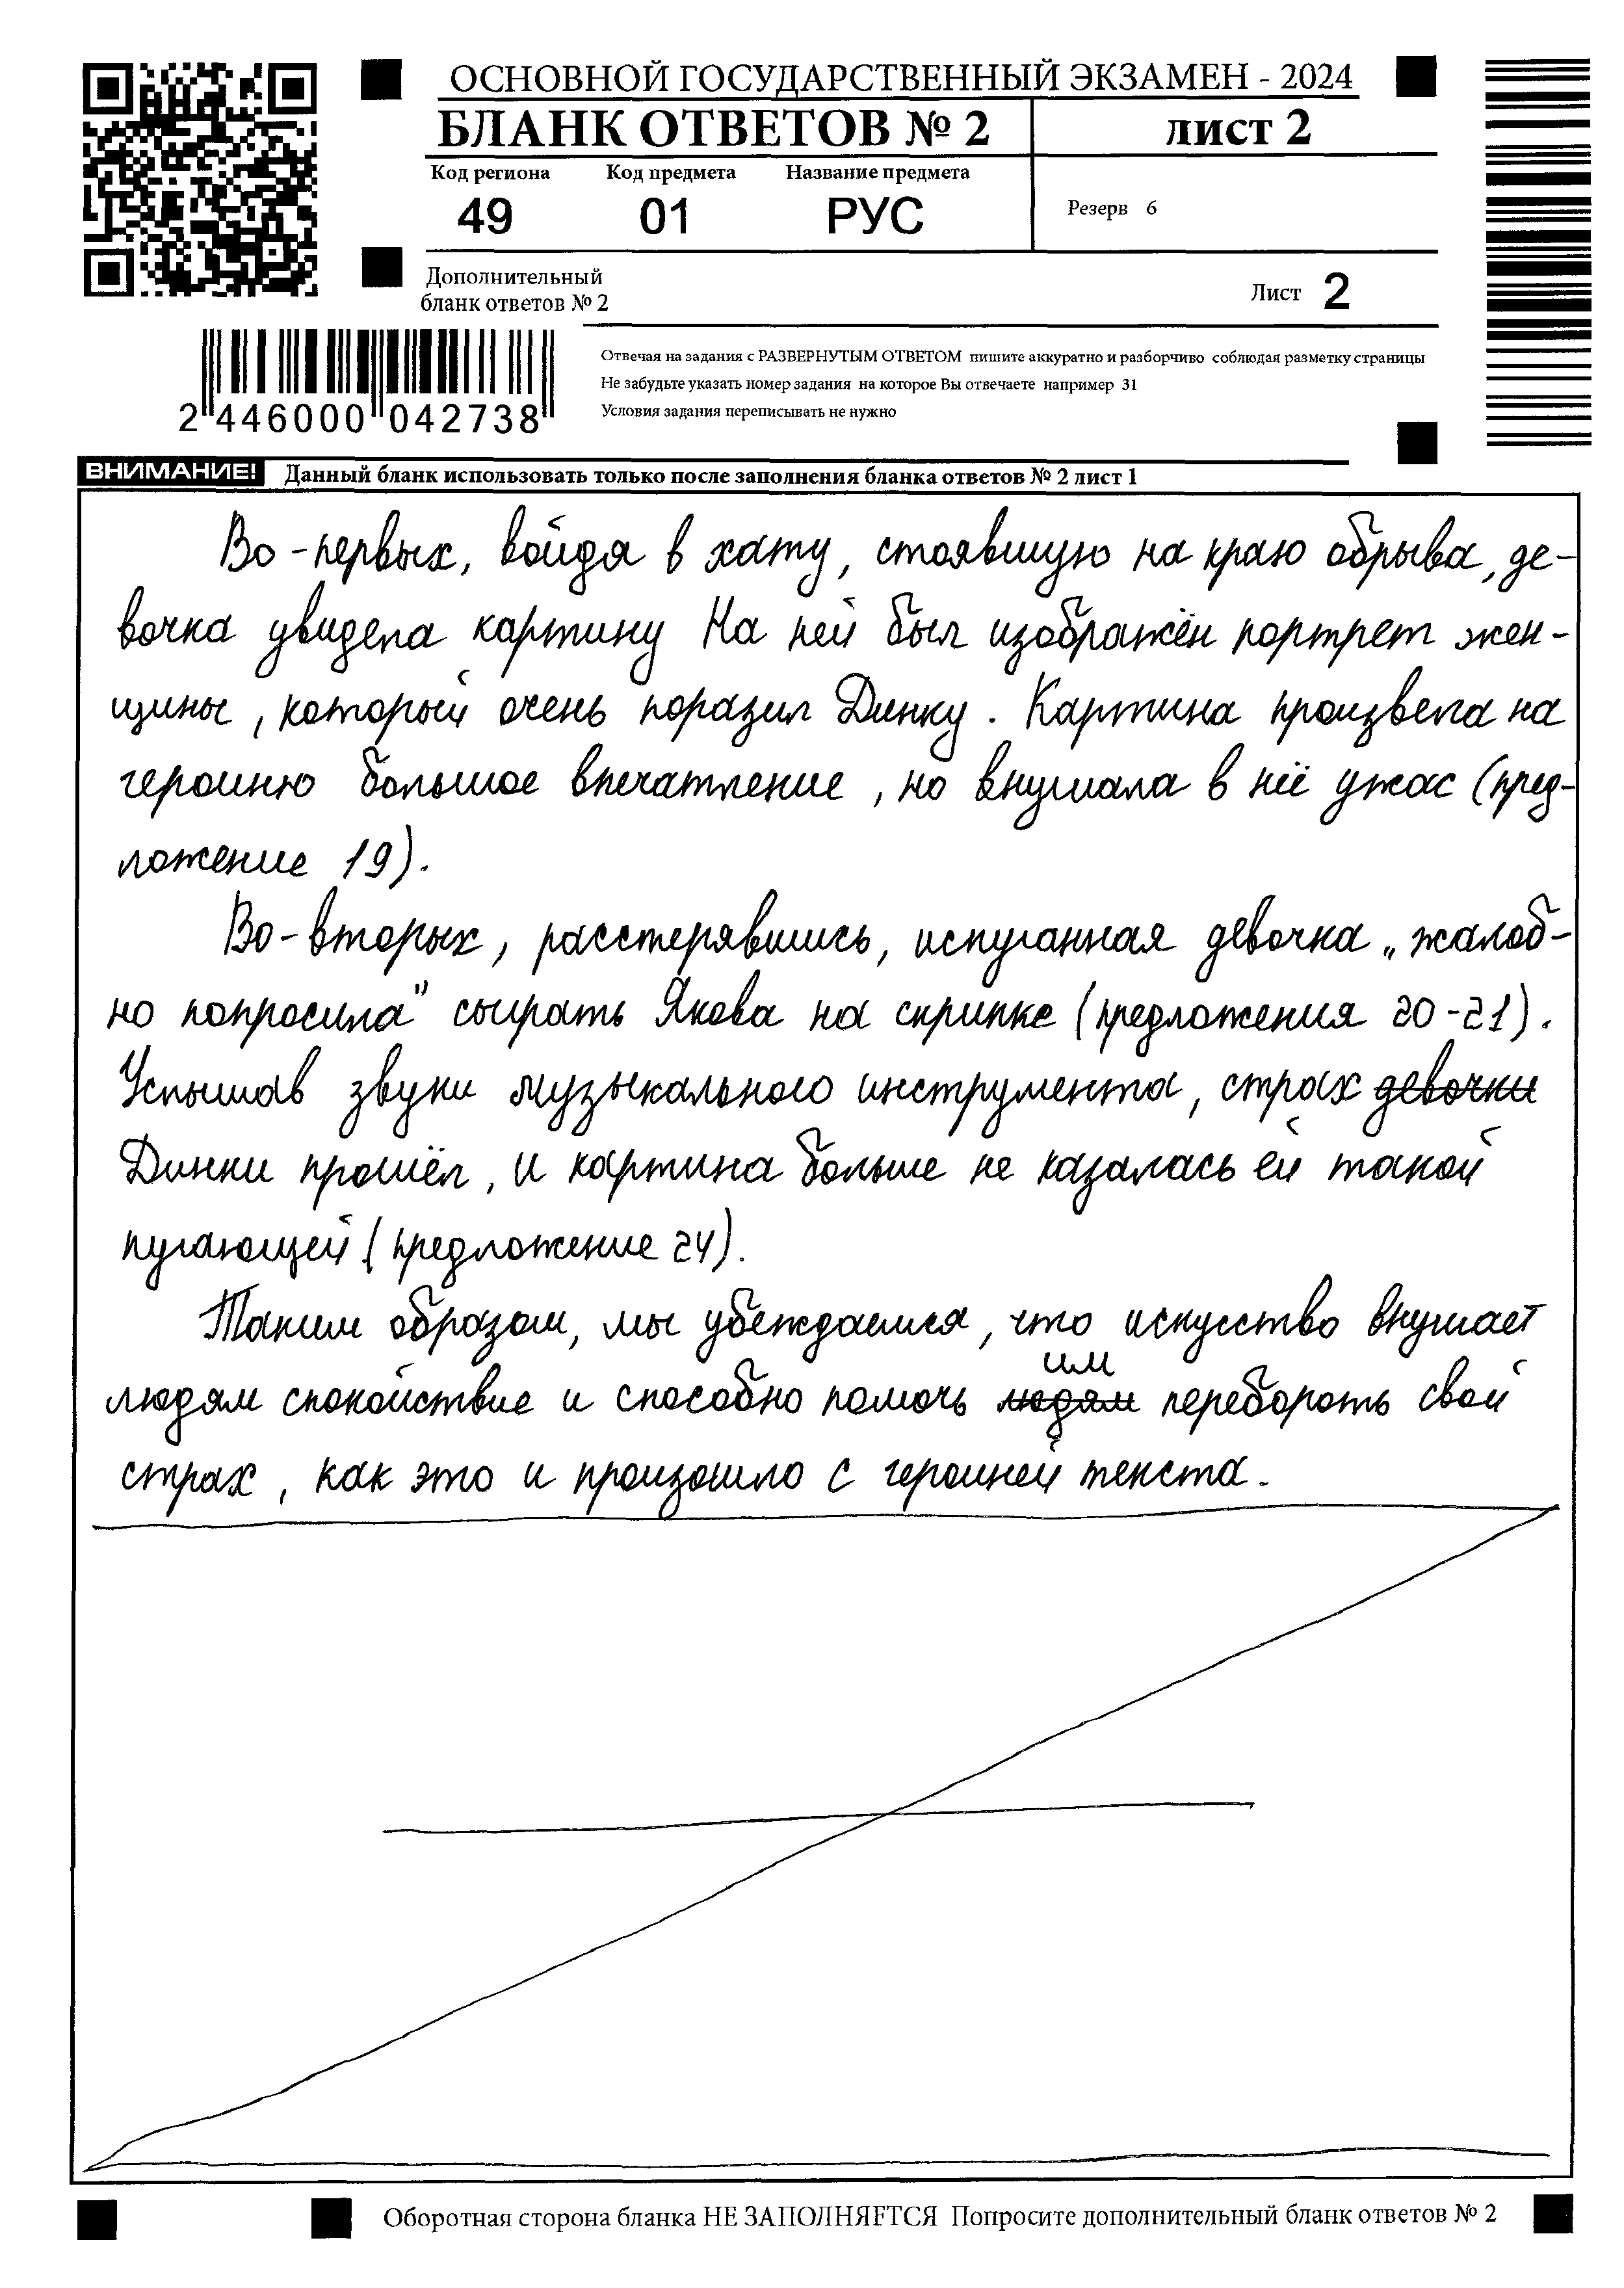 ОСНОВНОЙ ГОСУДАРСТВЕННЫЙ ЭКЗАМЕН - 2024
БЛАНК ОТВЕТОВ № 2
лист 2
Код региона Код предмета Название предмета
49 01 РУС
Резерв 6
Дополнительный
бланк ответов № 2
Лист 2
2 446000 042738
Отвечая на задания с РАЗВЕРНУТЫМ ОТВЕТОМ пишите аккуратно и разборчиво соблюдая разметку страницы
Не забудьте указать номер задания на которое Вы отвечаете например 31
Условия задания переписывать не нужно
ВНИМАНИЕ! Данный бланк использовать только после заполнения бланка ответов № 2 лист 1
Во-первых, войдя в хату, стоявшую на краю обрыва, де-
вочка увидела картину На ней был изображён портрет жен-
щины, который очень поразил Динку. Картина произвела на
героиню большое впечатление, но внушала в неё ужас (пред-
ложение 19).
Во-вторых, расстерявшись, испуганная девочка „жалоб-
но попросила" сыграть Якова на скрипке (предложения 20-21).
Услышав звуки музыкального инструмента, страх девочки
Динки прошёл, и картина больше не казалась ей такой
пугающей (предложение 24).
Таким образом, мы убеждаемся, что искусство внушает
им
людям спокойствие и способно помочь людям перебороть свой
страх, как это и произошло с героиней текста.
Оборотная сторона бланка НЕ ЗАПОЛНЯЕТСЯ Попросите дополнительный бланк ответов № 2